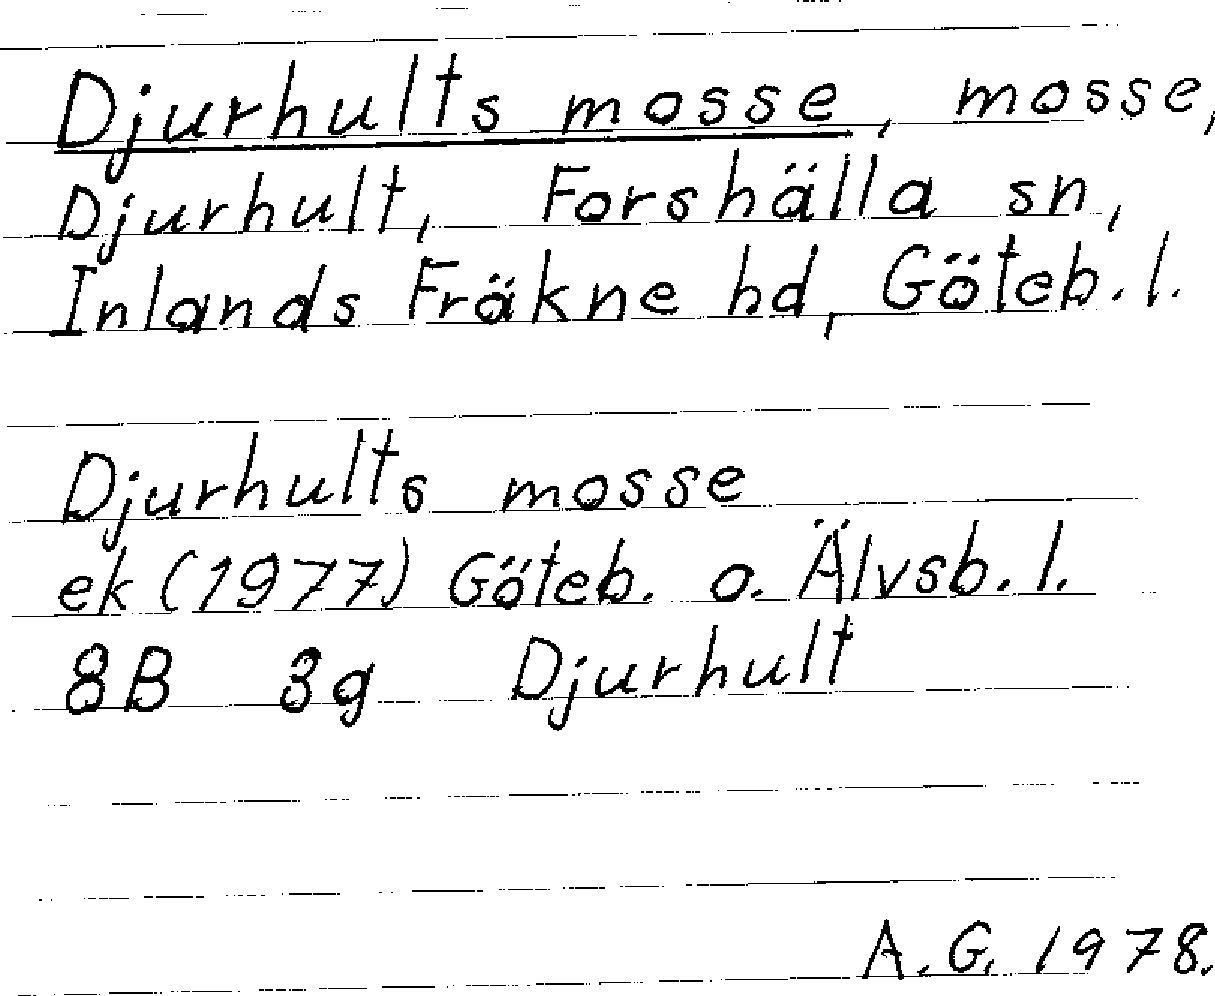 Djurhults mosse, mosse,
Djurhult, Forshälla sn,
Inlands Fräkne hd, Göteb. l.
Djurhults mosse
ek (1977) Göteb. o. Älvsb. l.
8B 3g Djurhult
A. G. 1978.